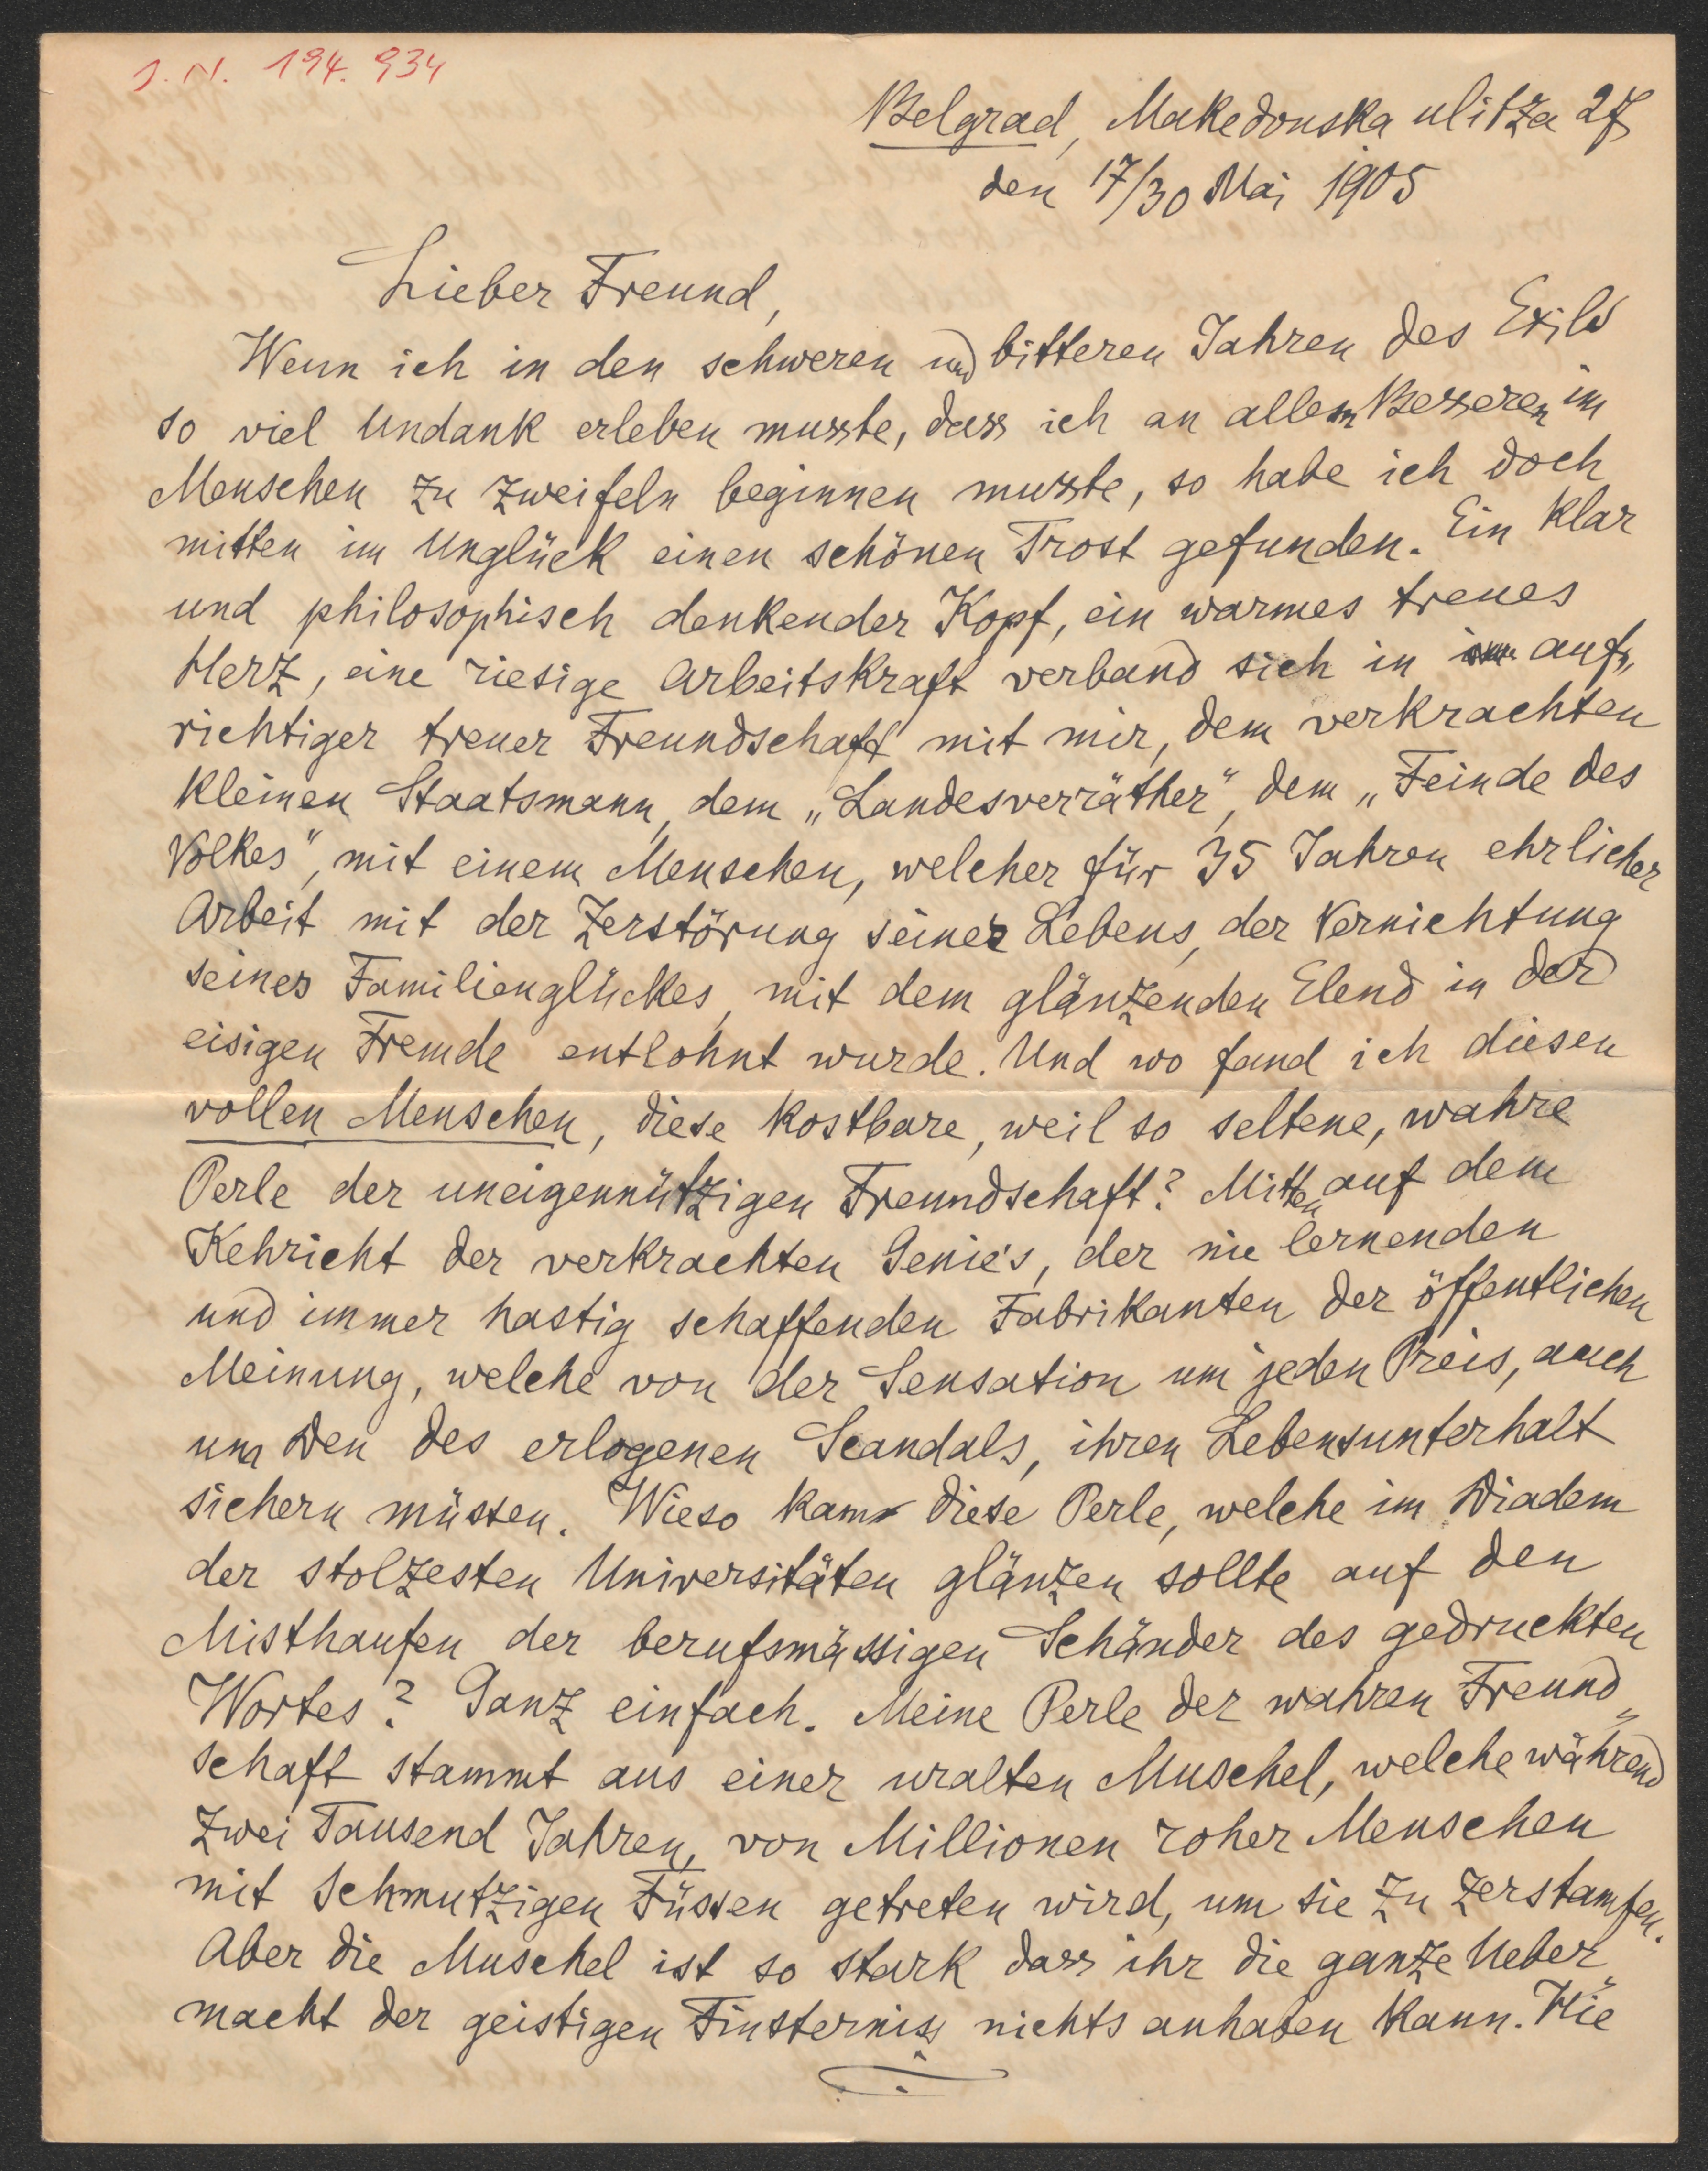 J. N. 194.934
Belgrad, Makedonska ulitza 27
den 17/30 Mai 1905
Lieber Freund,
Wenn ich in den schweren und bitteren Jahren des Exils
so viel Undank erleben musste, dass ich an allem Besseren im
Menschen zu zweifeln beginnen musste, so habe ich doch
mitten im Unglück einen schönen Trost gefunden. Ein klar
und philosophisch denkender Kopf, ein warmes treues
Herz, eine riesige Arbeitskraft verband sich in auf„
richtiger treuer Freundschaft mit mir, dem verkrachten
kleinen Staatsmann, dem „Landesverräther", dem „Feinde des
Volkes", mit einem Menschen, welcher für 35 Jahren ehrlicher
Arbeit mit der Zerstörung seines Lebens, der Vernichtung
seines Familienglückes, mit dem glänzenden Elend in der
eisigen Fremde entlohnt wurde. Und wo fand ich diesen
vollen Menschen, diese kostbare, weil so seltene, wahre
Perle der uneigennützigen Freundschaft? Mitten auf dem
Kehricht der verkrachten Genie's, der nie lernenden
und immer hastig schaffenden Fabrikanten der öffentlichen
Meinung, welche von der Sensation um jeden Preis, auch
um den des erlogenen Scandals, ihren Lebensunterhalt
sichern müssen. Wieso kam diese Perle, welche im Diadem
der stolzesten Universitäten glänzen sollte auf den
Misthaufen der berufsmässigen Schänder des gedruckten
Wortes? Ganz einfach. Meine Perle der wahren Freund„
schaft stammt aus einer uralten Muschel, welche während
zwei Tausend Jahren, von Millionen roher Menschen
mit schmutzigen Füssen getreten wird, um sie zu zerstampfen.
Aber die Muschel ist so stark dass ihr die ganze Ueber„
macht der geistigen Finsterniss nichts anhaben kann. Wie